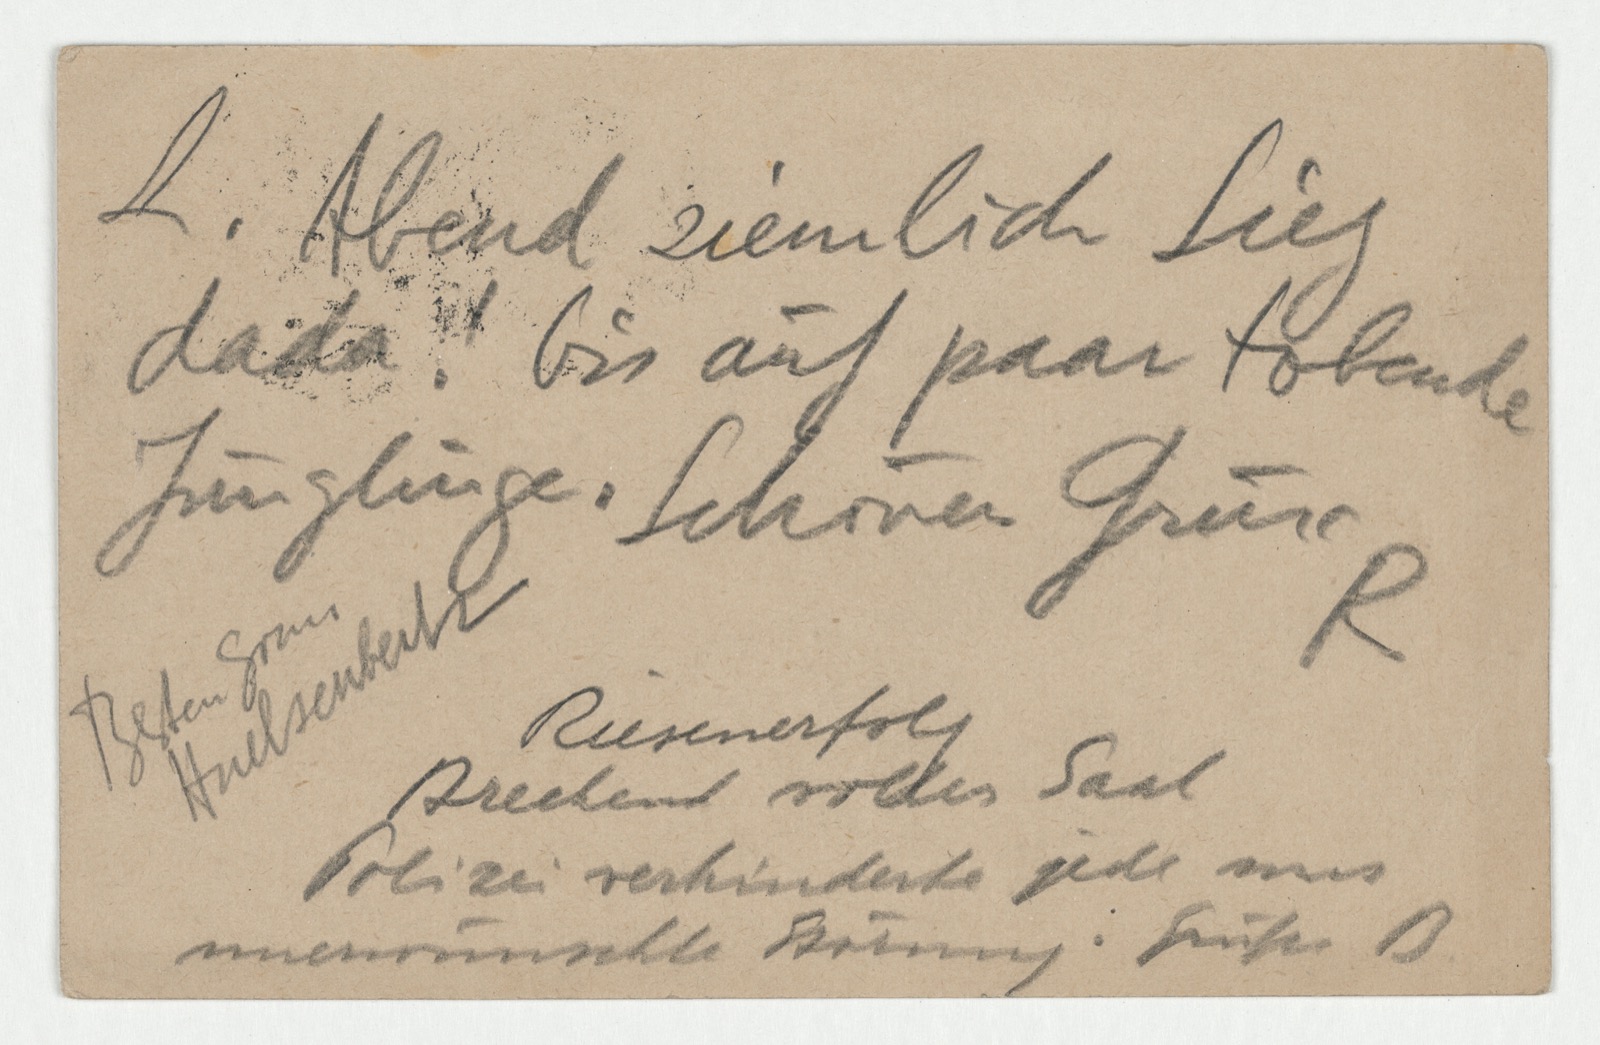 L. Abend ziemlich Sieg
dada! bis auf paar tobende
Jünglinge. Schönen Grüsse
R
Besten Gruss
Huelsenbeck
Riesenerfolg
Brechend voller Saal
Polizei verhinderte jede uns
unerwünschte Störung. Grüße B